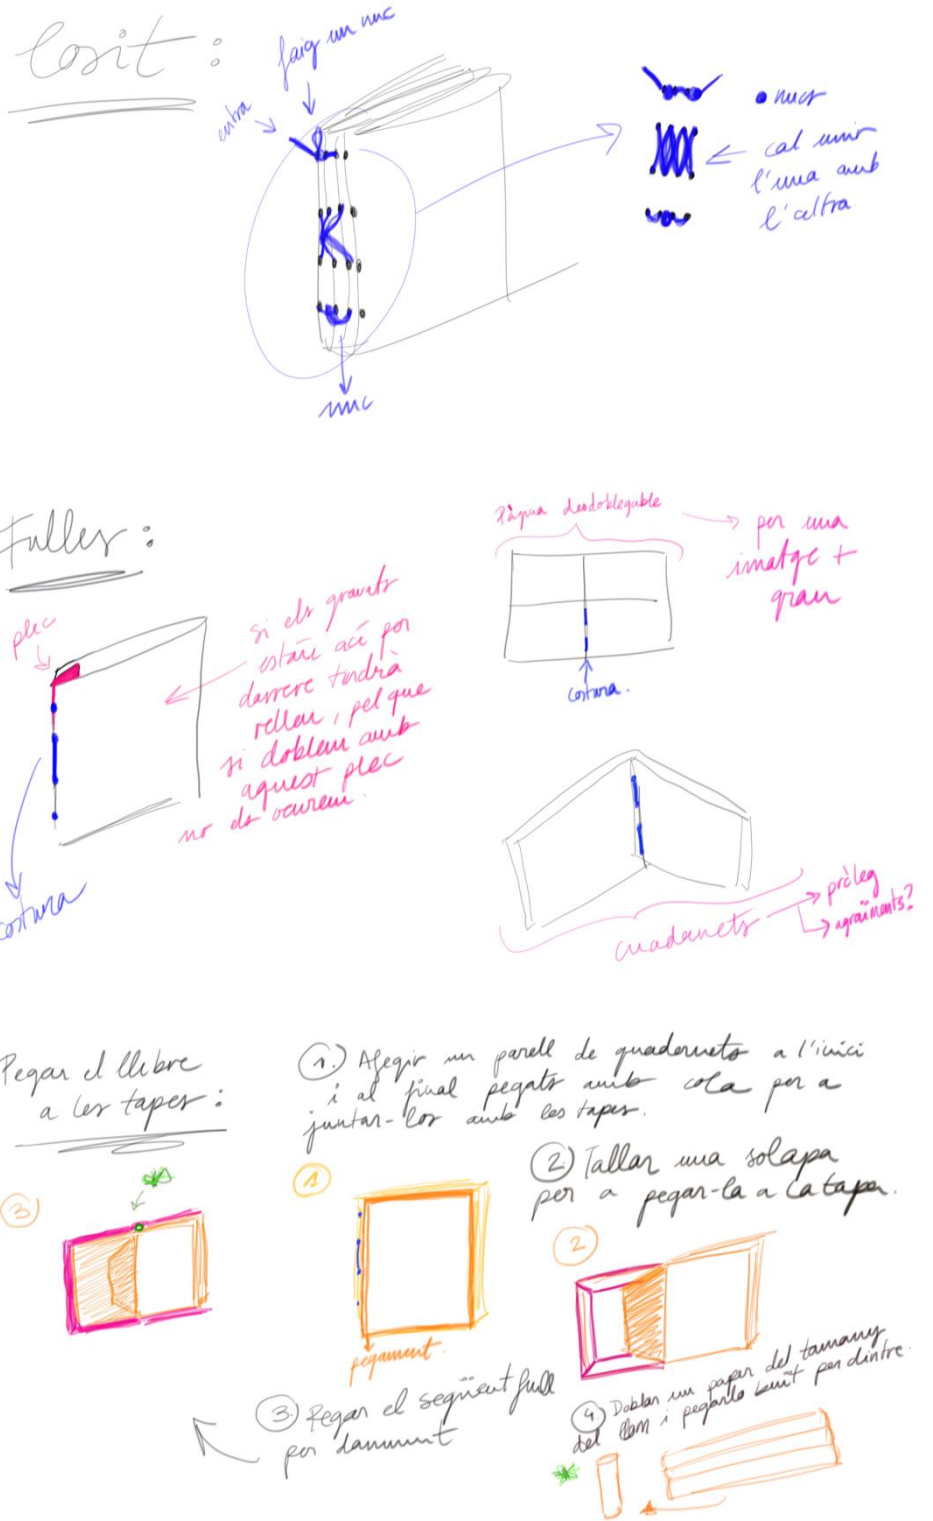 Cosit :
faig un nuc
entra
nucs
cal unir
l'una amb
l'altra
nuc
Fulles :
plec
si els gravats
estàn ací por
darrere tindrà
relleu, pel que
si doblem amb
aquest plec
no els veurem.
costura
Pàgina desdoblegable
per una
imatge +
gran
costura.
cuadernets
pròleg
agraïments?
Pegar el llibre
a les tapes :
1. Afegir un parell de quadernets a l'inici
i al final pegats amb cola per a
juntar-los amb les tapes.
2 Tallar una solapa
per a pegar-la a la tapa.
3
1
pegament.
2
3. Pegar el següent full
per damunt
4. Doblar un paper del tamany
del llom i pegarlo buit per dintre.